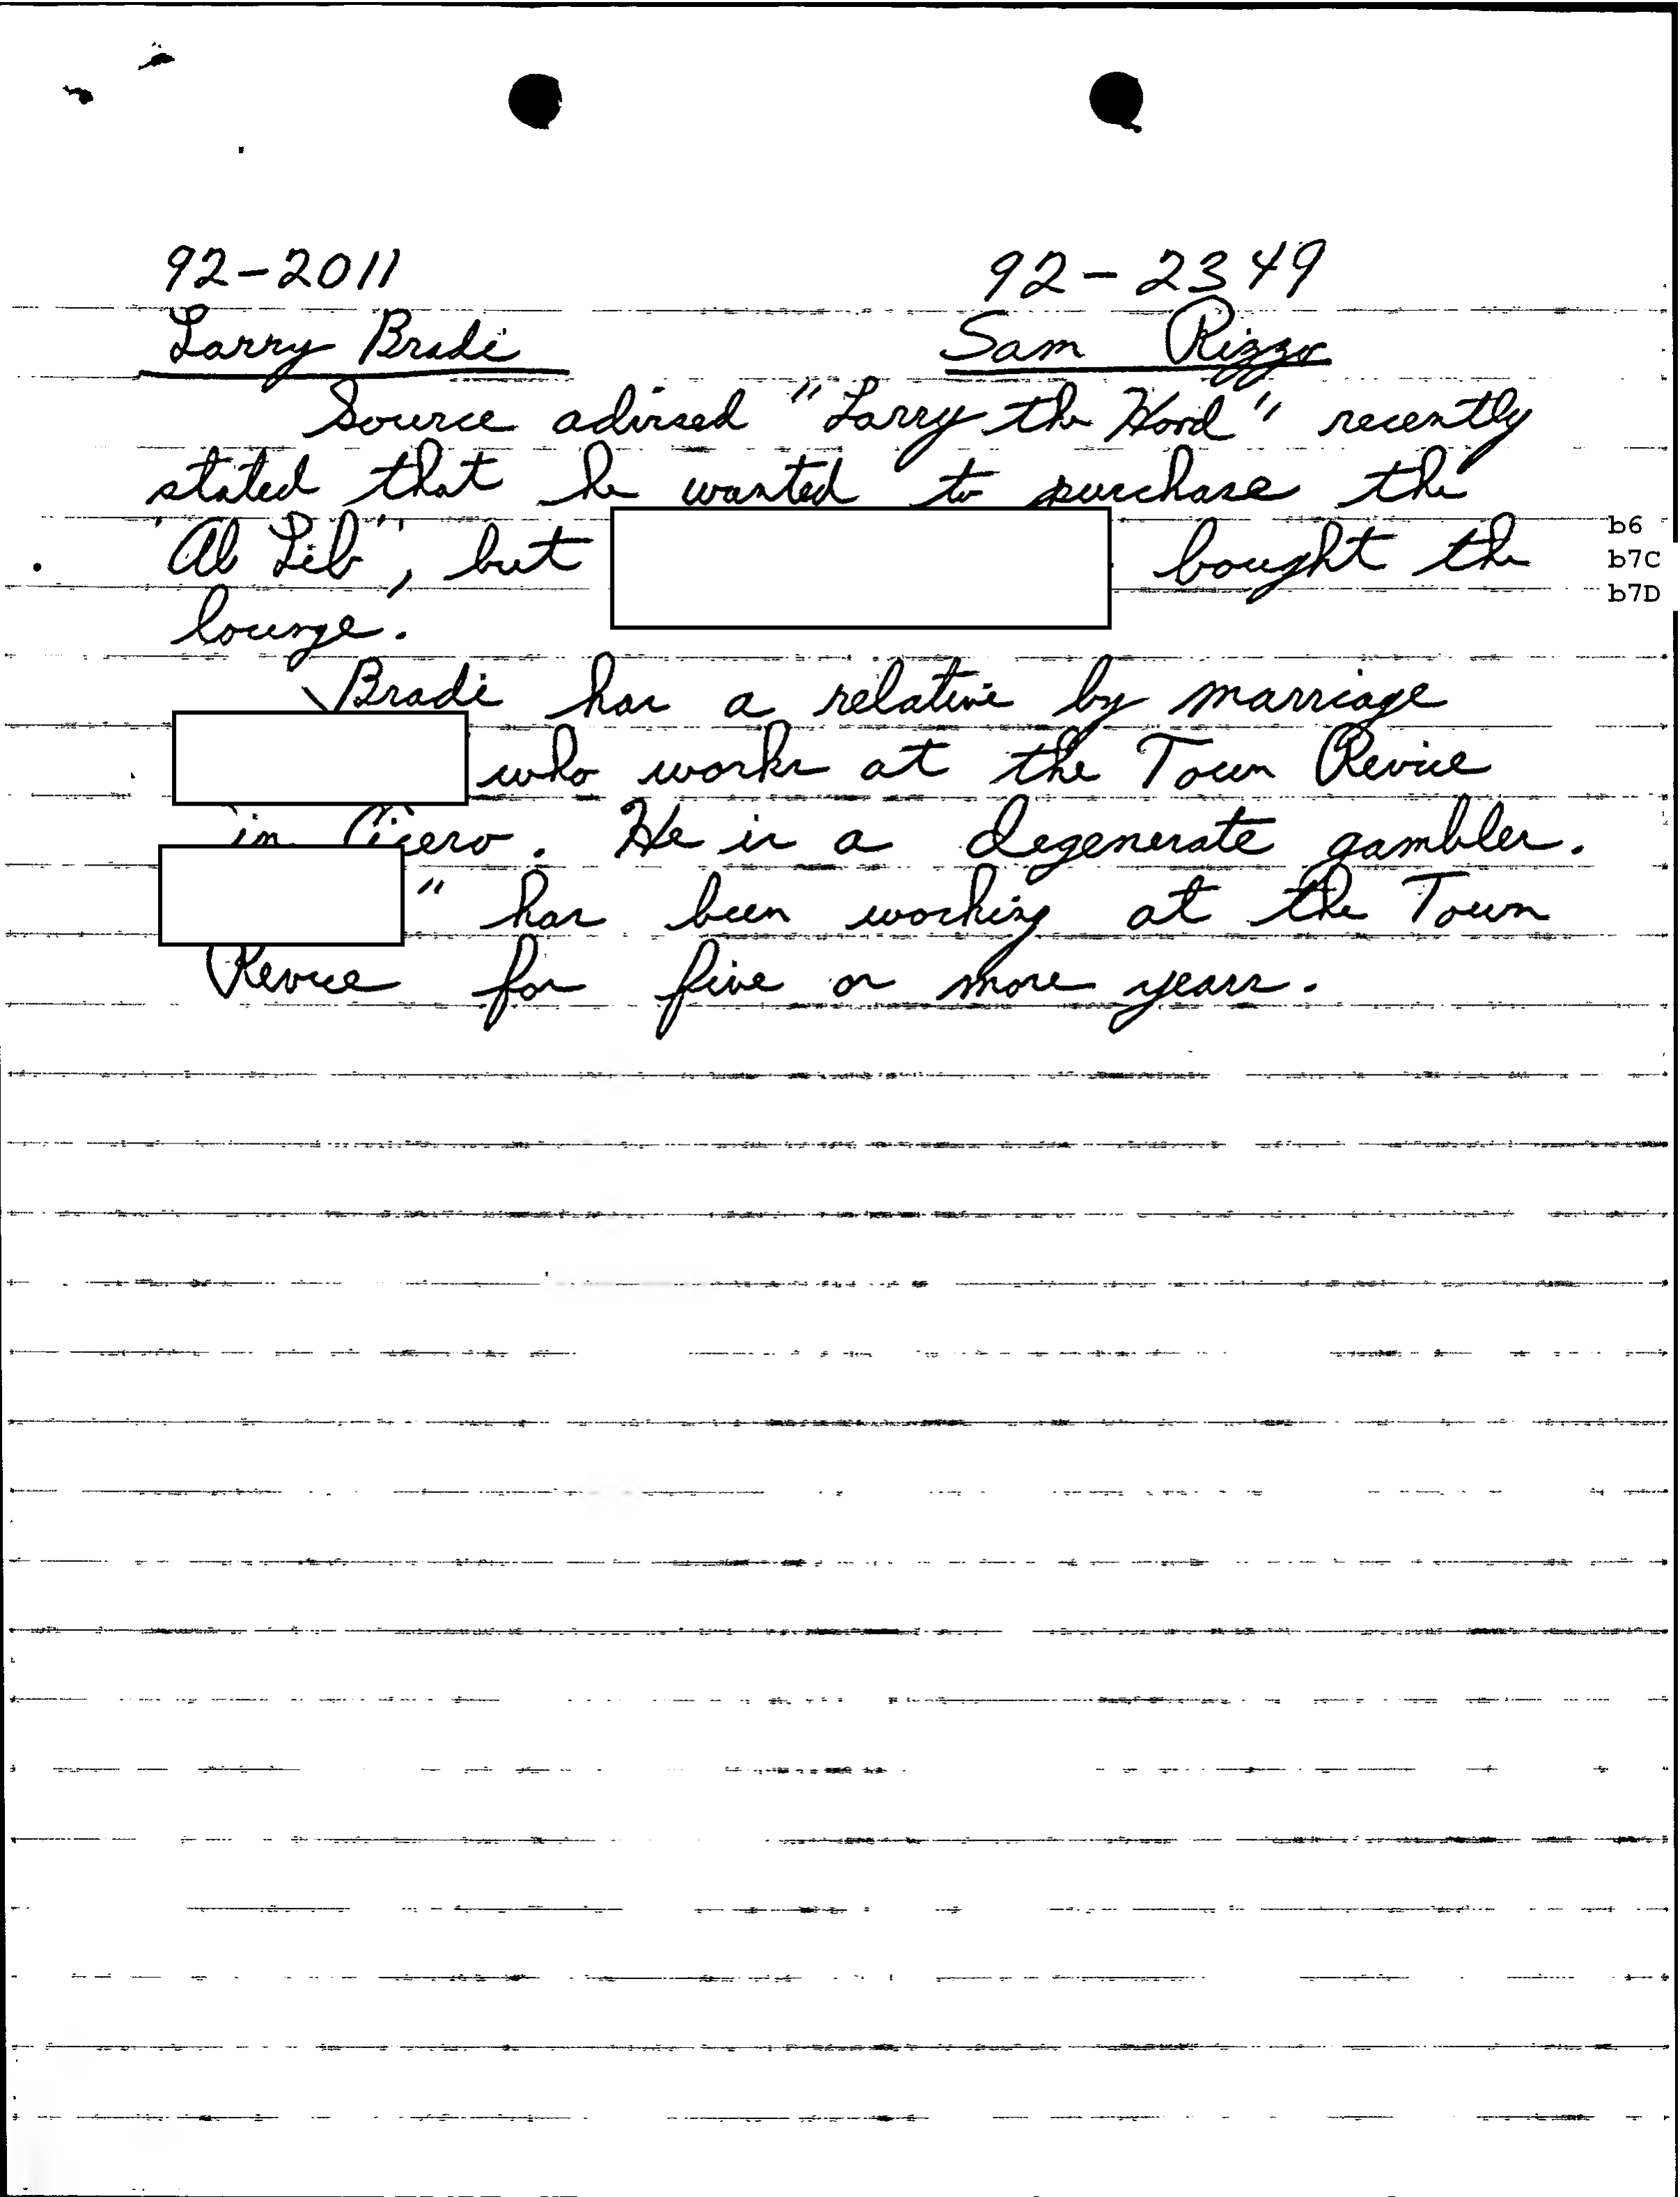 92-2011 92-2349
Larry Bradi Sam Rizzo
Source adirsed "Larry the Hood" recently
stated that he wanted to purchase the
"Ab Lib", but bought the
b6
b7C
b7D
lounge.
Bradi has a relative by marriage
who works at the Town Revue
in Cicero. He is a degenerate gambler.
" has been working at the Town
Revue for five or more years.